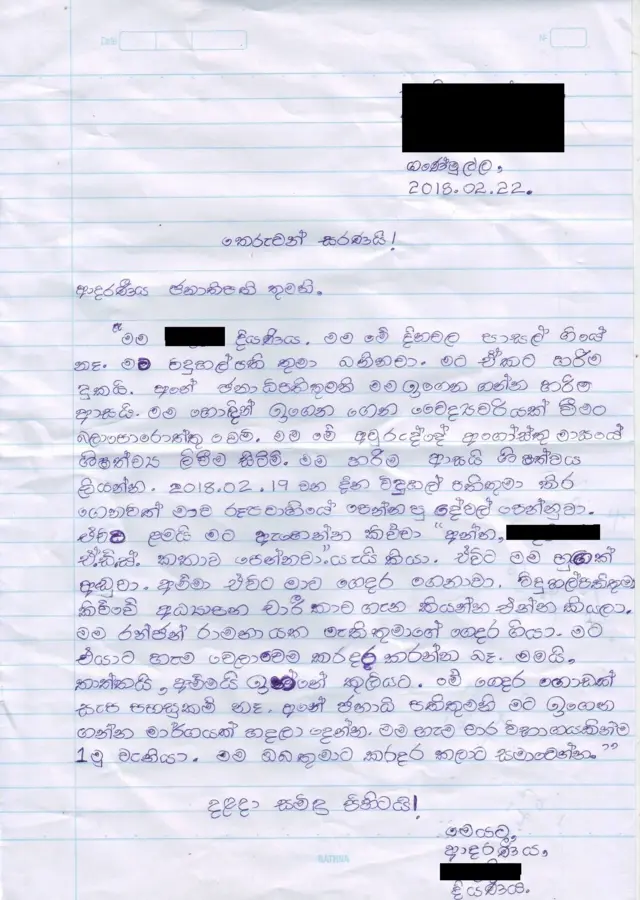 Date
Nº
ගණේමුල්ල,
2018.02.22.
තෙරුවන් සරණයි!
ආදරණීය ජනාධිපති තුමනි.
"මම දියණිය. මම මේ දිනවල පාසල් ගියේ
නෑ. මට විදුහල්පති තුමා බනිනවා. මට ඒකට හරිම
දුකයි. අනේ ජනාධිපතිතුමනි මම ඉගෙන ගන්න හරිම
ආසයි. මම හොඳින් ඉගෙන ගෙන වෛද්‍යවරියක් වීමට
බලාපොරොත්තු වෙමි. මම මේ අවුරුද්දේ අගෝස්තු මාසයේ
ශිෂත්ව්‍ය ලිවීම සිටිමි. මම හරිම ආසයි ශිෂත්වය
ලියන්න. 2018.02.19 වන දින විදුහල් පතිතුමා
ගෙනවත් මාව රූපවාහිනියේ පෙන්නපු දේවල් පෙන්නුවා.
ඒවිට ළමයි මට ඇහෙන්න කිව්වා "අන්න,
ඒඩ්ස් කතාව පෙන්නවා." යැයි කියා. ඒවිට මම හුඟක්
අඬුවා. අම්මා ඒවිට මාව ගෙදර ගෙනාවා. විදුහල්පතිතුමා
කිව්වේ අධ්‍යාපන චාරිකාව ගැන කියන්න එන්න කියලා.
මම රන්ජන් රාමනායක මැතිතුමාගේ ගෙදර ගියා. මට
එයාට හැම වෙලාවෙම කරදර කරන්න බෑ. මමයි,
තාත්තයි, අම්මයි ඉන්නේ කුලියට. මේ ගෙදර හොඩක්
සැප පහසුකම් නෑ. අනේ ජනාධි පතිතුමනි මට ඉගෙන
ගන්න මාර්ගයක් හදලා දෙන්න. මම හැම වාර විභාගයකින්ම
1 මු වැනියා. මම ඔබතුමාට කරදර කලාට සමාවෙන්න."
දළදා සමිඳු පිහිටයි!
මෙයට,
ආදරණීය,
දියණිය.
RATHNA